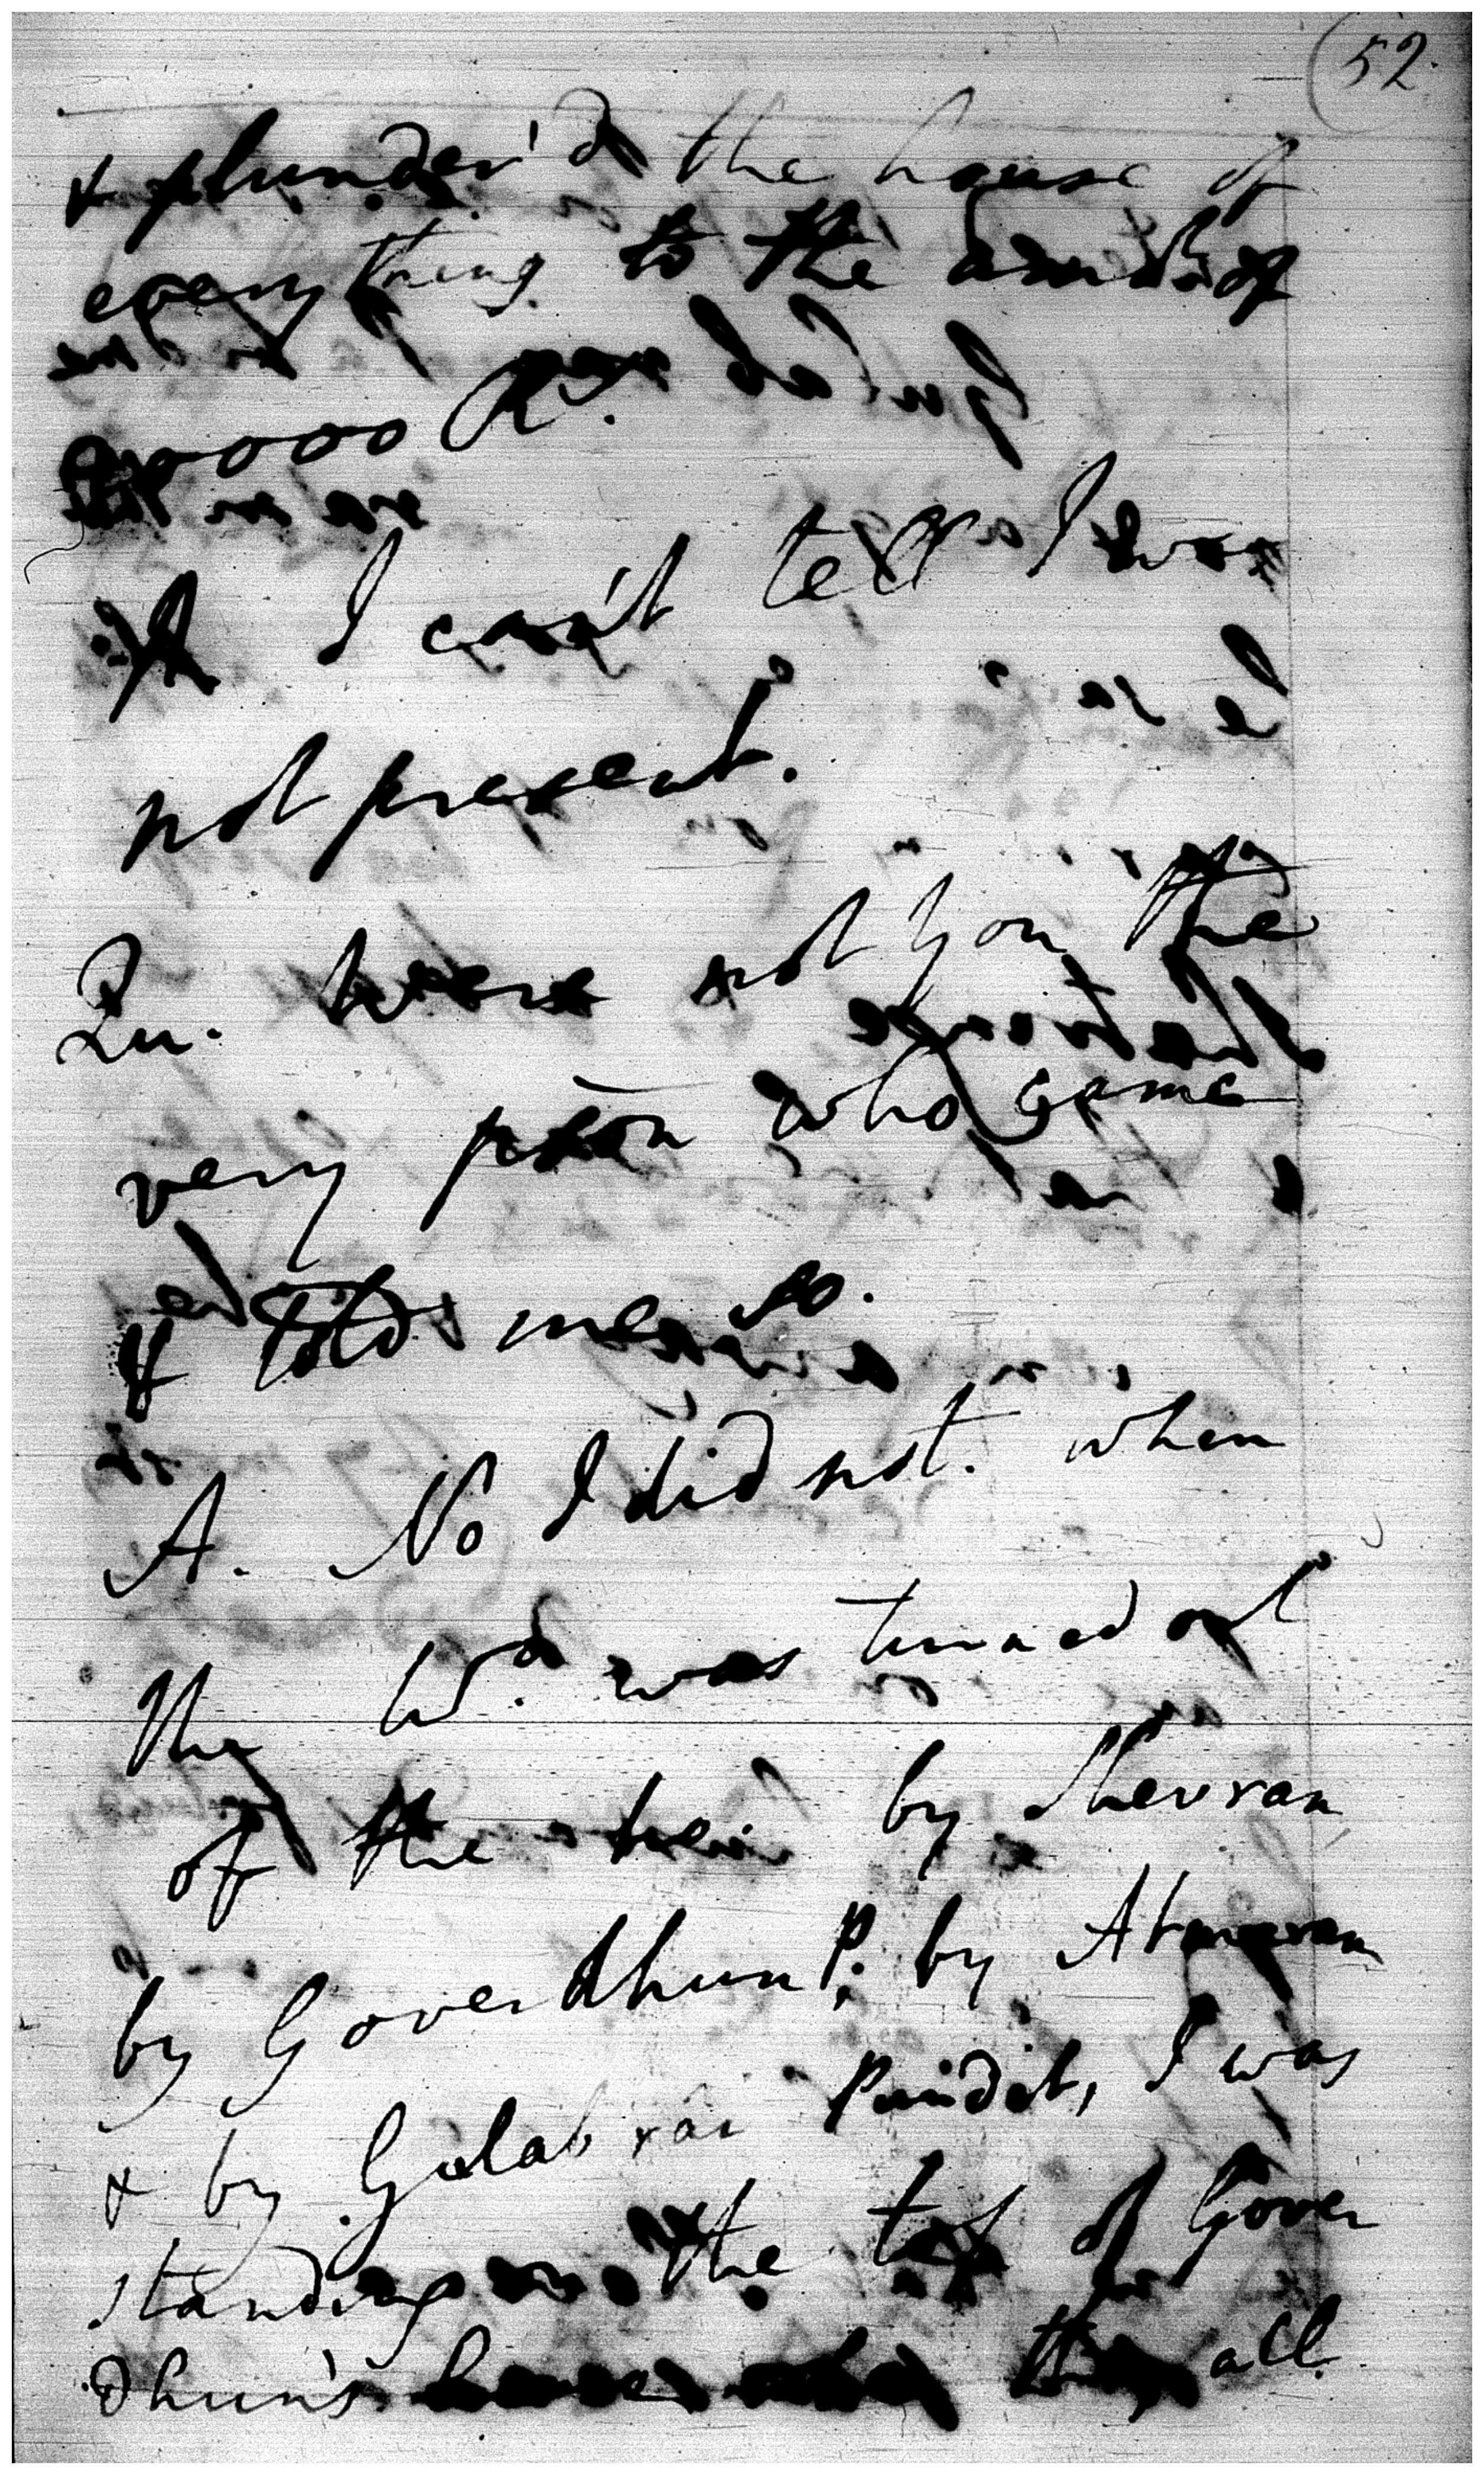 52
& plunder'd the house of
every thing to the amot. of
0000 Rs.
A I can't tell I was
not present.
Qu. were not you the
very psōn who came
& told me so.
A. No I did not. when
the Wd. was turned out
of the by Shevram
by Goverdhun P. by Atmaram
& by Gulabrai Pundit, I was
standing on the top of Gover
dhun's house they all